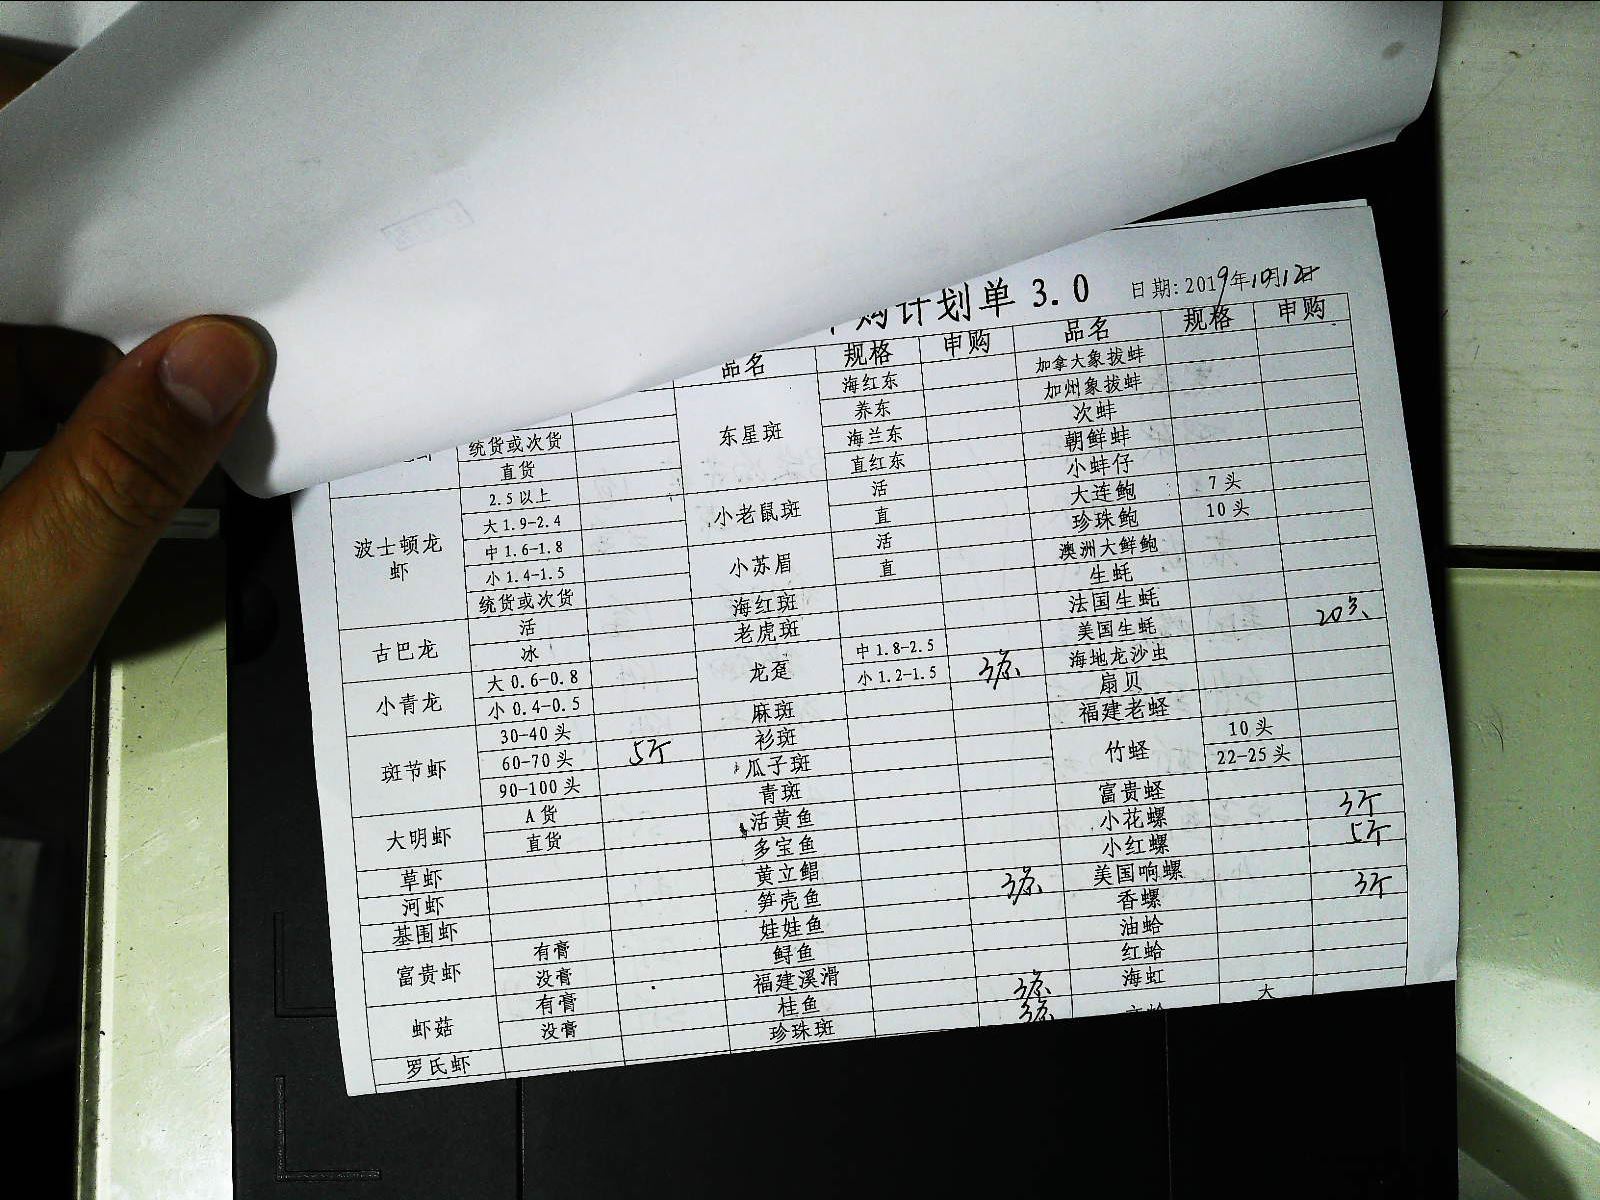 购计划单 3.0
日期: 2019年10月12日
统货或次货
直货
波士顿龙虾 2.5以上
大1.9-2.4
中1.6-1.8
小1.4-1.5
统货或次货
古巴龙 活
冰
小青龙 大0.6-0.8
小0.4-0.5
斑节虾 30-40头
60-70头 5斤
90-100头
大明虾 A货
直货
草虾
河虾
基围虾
富贵虾 有膏
没膏
虾菇 有膏
没膏
罗氏虾
品名 规格 申购
东星斑 海红东
养东
海兰东
直红东
小老鼠斑 活
直
小苏眉 活
直
海红斑
老虎斑
龙趸 中1.8-2.5
小1.2-1.5 3条
麻斑
衫斑
瓜子斑
青斑
活黄鱼
多宝鱼
黄立鲳
笋壳鱼 3条
娃娃鱼
鲟鱼
福建溪滑
桂鱼 3条
珍珠斑 3条
品名 规格 申购
加拿大象拔蚌
加州象拔蚌
次蚌
朝鲜蚌
小蚌仔
大连鲍 7头
珍珠鲍 10头
澳洲大鲜鲍
生蚝
法国生蚝
美国生蚝 20只
海地龙沙虫
扇贝
福建老蛏
竹蛏 10头
22-25头
富贵蛏
小花螺 3斤
小红螺 5斤
美国响螺
香螺 3斤
油蛤
红蛤
海虹
大